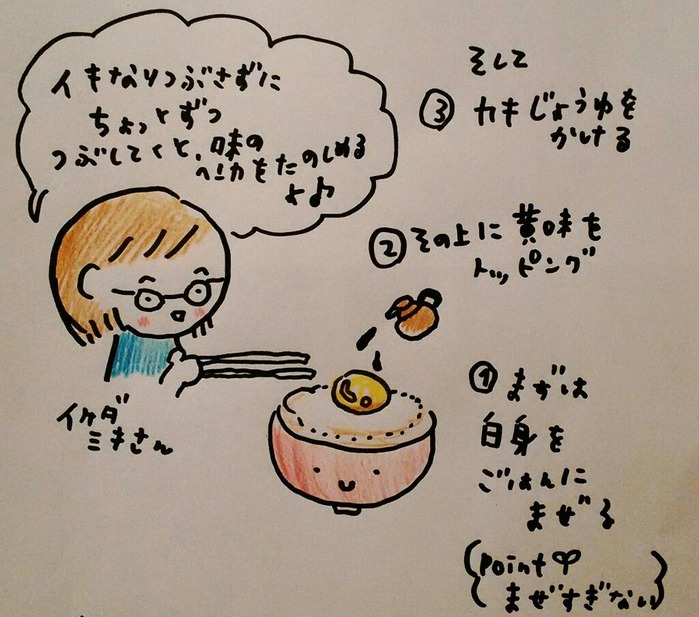 イキなりつぶさずに
ちょっとずつ
つぶしてくと、味の
ヘンカをたのしめる
よ♪
イケダ
ミキさん
そして
③ カキじょうゆを
かける
② その上に黄味を
トッピング
① まずは
白身を
ごはんに
まぜる
(point
まぜすぎない)